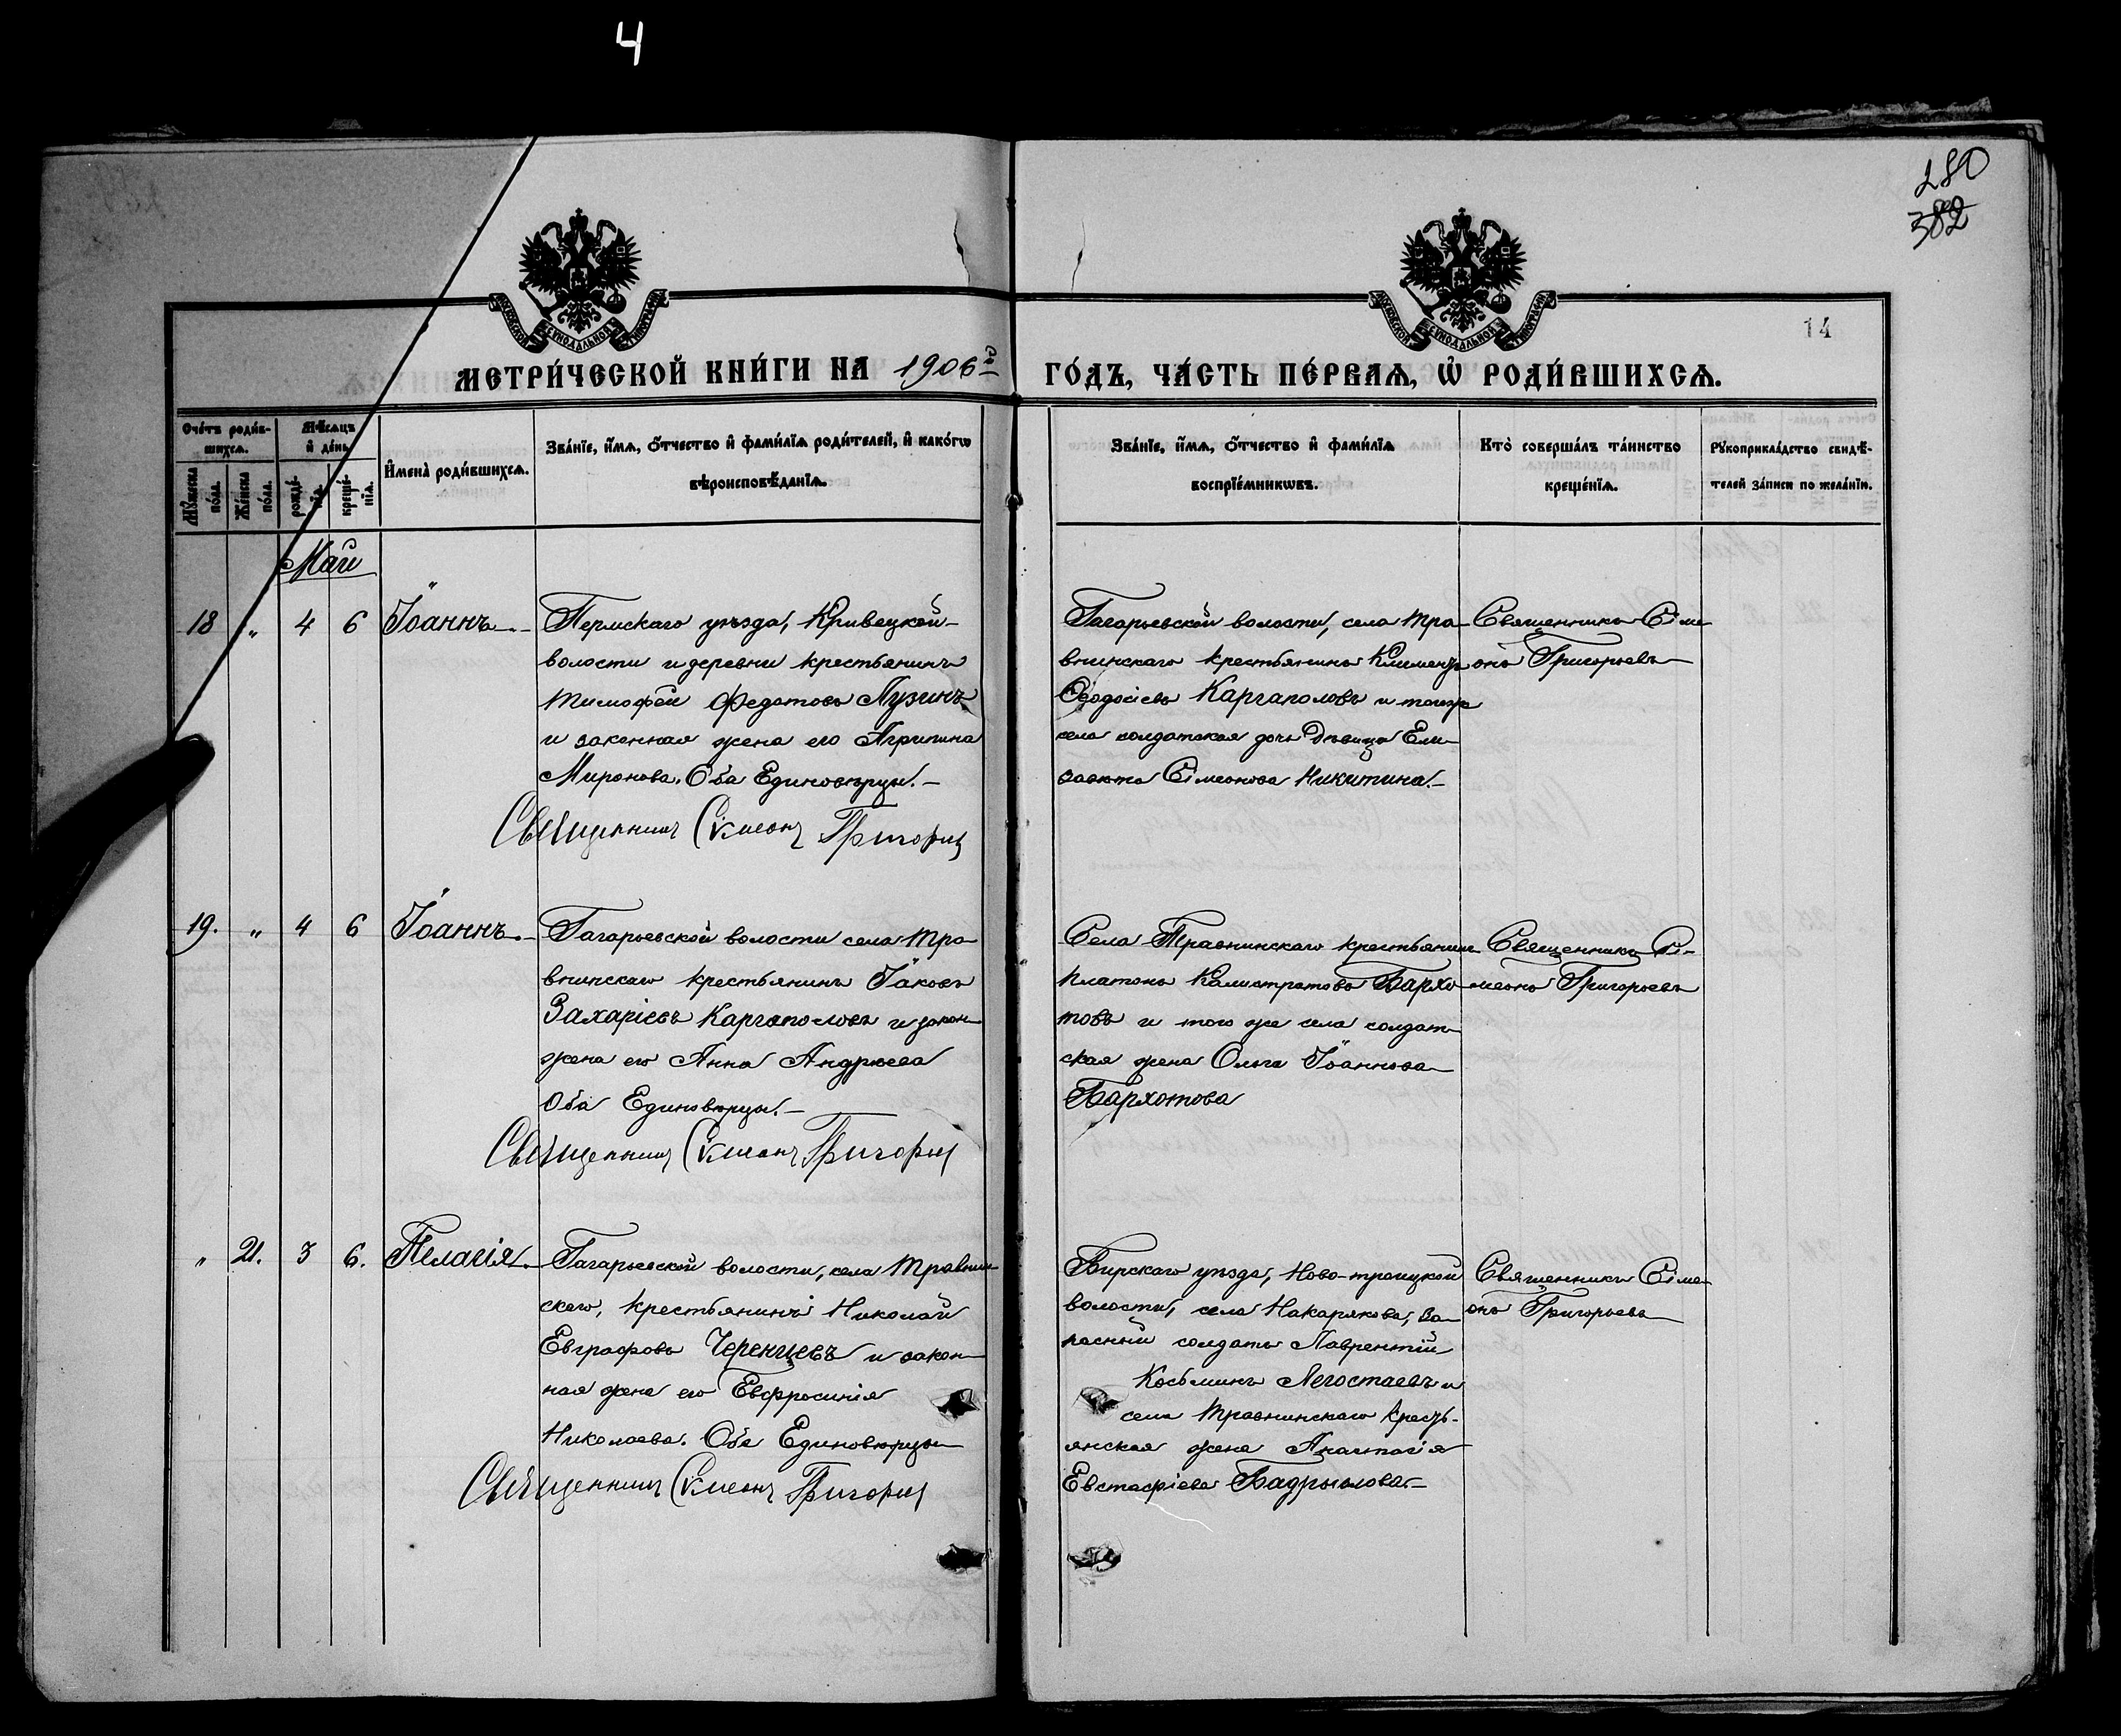 4
280
382
14
МЕТРИ́ЧЕСКОЙ КНИ́ГИ НА 1906 г ГО́ДЪ, ЧА́СТЬ ПЕ́РВАѦ, Ѽ РОДИ́ВШИХСѦ.
Сче́тъ роди́в-
шихсѧ.
Мꙋ́жеска по́ла.
Же́нска по́ла.
Мѣ́сѧцъ
и҆ де́нь
рожде́-
нїѧ.
креще́-
нїѧ.
И҆мена̀ роди́вшихсѧ.
Зва́нїе, и҆́мѧ, ѻ҆́тчество и҆ фами́лїѧ роди́телей, и҆ како́гѡ
вѣроисповѣ́данїѧ.
Зва́нїе, и҆́мѧ, ѻ҆́тчество и҆ фами́лїѧ
воспрїе́мникѡвъ.
Кто̀ соверша́лъ та́инство
креще́нїѧ.
Рꙋкоприкла́дство свидѣ́-
телей за́писи по жела́нїю.
Май
18 " 4 6 Іоаннъ.
Пермскаго уѣзда, Кривецкой
волости и деревни крестьянинъ
Тимофей Федотовъ Пузинъ
и законная жена его Агрипина
Миронова. Оба Единовѣрцы.
Священникъ Сѵмеонъ Григорьев
Гагарьевской волости, села Тра-
внинскаго крестьянинъ Климентъ
Ѳеодосіевъ Каргаполовъ и тогоже
села солдатская дочь дѣвица Ели-
завета Сімеонова Никитина.
Священникъ Сіме-
онъ Григорьевъ
19. " 4 6 Іоаннъ.
Гагарьевской волости села Тра-
внинскаго крестьянинъ Іаковъ
Захаріевъ Каргаполовъ и закон
жена его Анна Андреева
Оба Единовѣрцы.
Священникъ Сѵмеонъ Григорьев
Села Травнинскаго крестьянинъ
Платонъ Калистратовъ Бархо-
товъ и того же села солдат-
ская жена Ольга Іоаннова
Бархотова
Священникъ Сі-
меонъ Григорьевъ
" 21. 3 6. Пелагія.
Гагарьевской волости, села Травнин-
скаго, крестьянинъ Николай
Евграфовъ Черенцевъ и закон-
ная жена его Евфросинія
Николаева. Оба Единовѣрцы
Священникъ Сѵмеонъ Григорьев
Бирскаго уѣзда, Ново-троицкой
волости, села Накарякова, за-
пасный солдатъ Лаврентій
Косьминъ Легостаевъ и
села Травнинскаго кресть-
янская жена Анастасія
Евстафіева Бадрызлова.
Священникъ Сіме-
онъ Григорьевъ